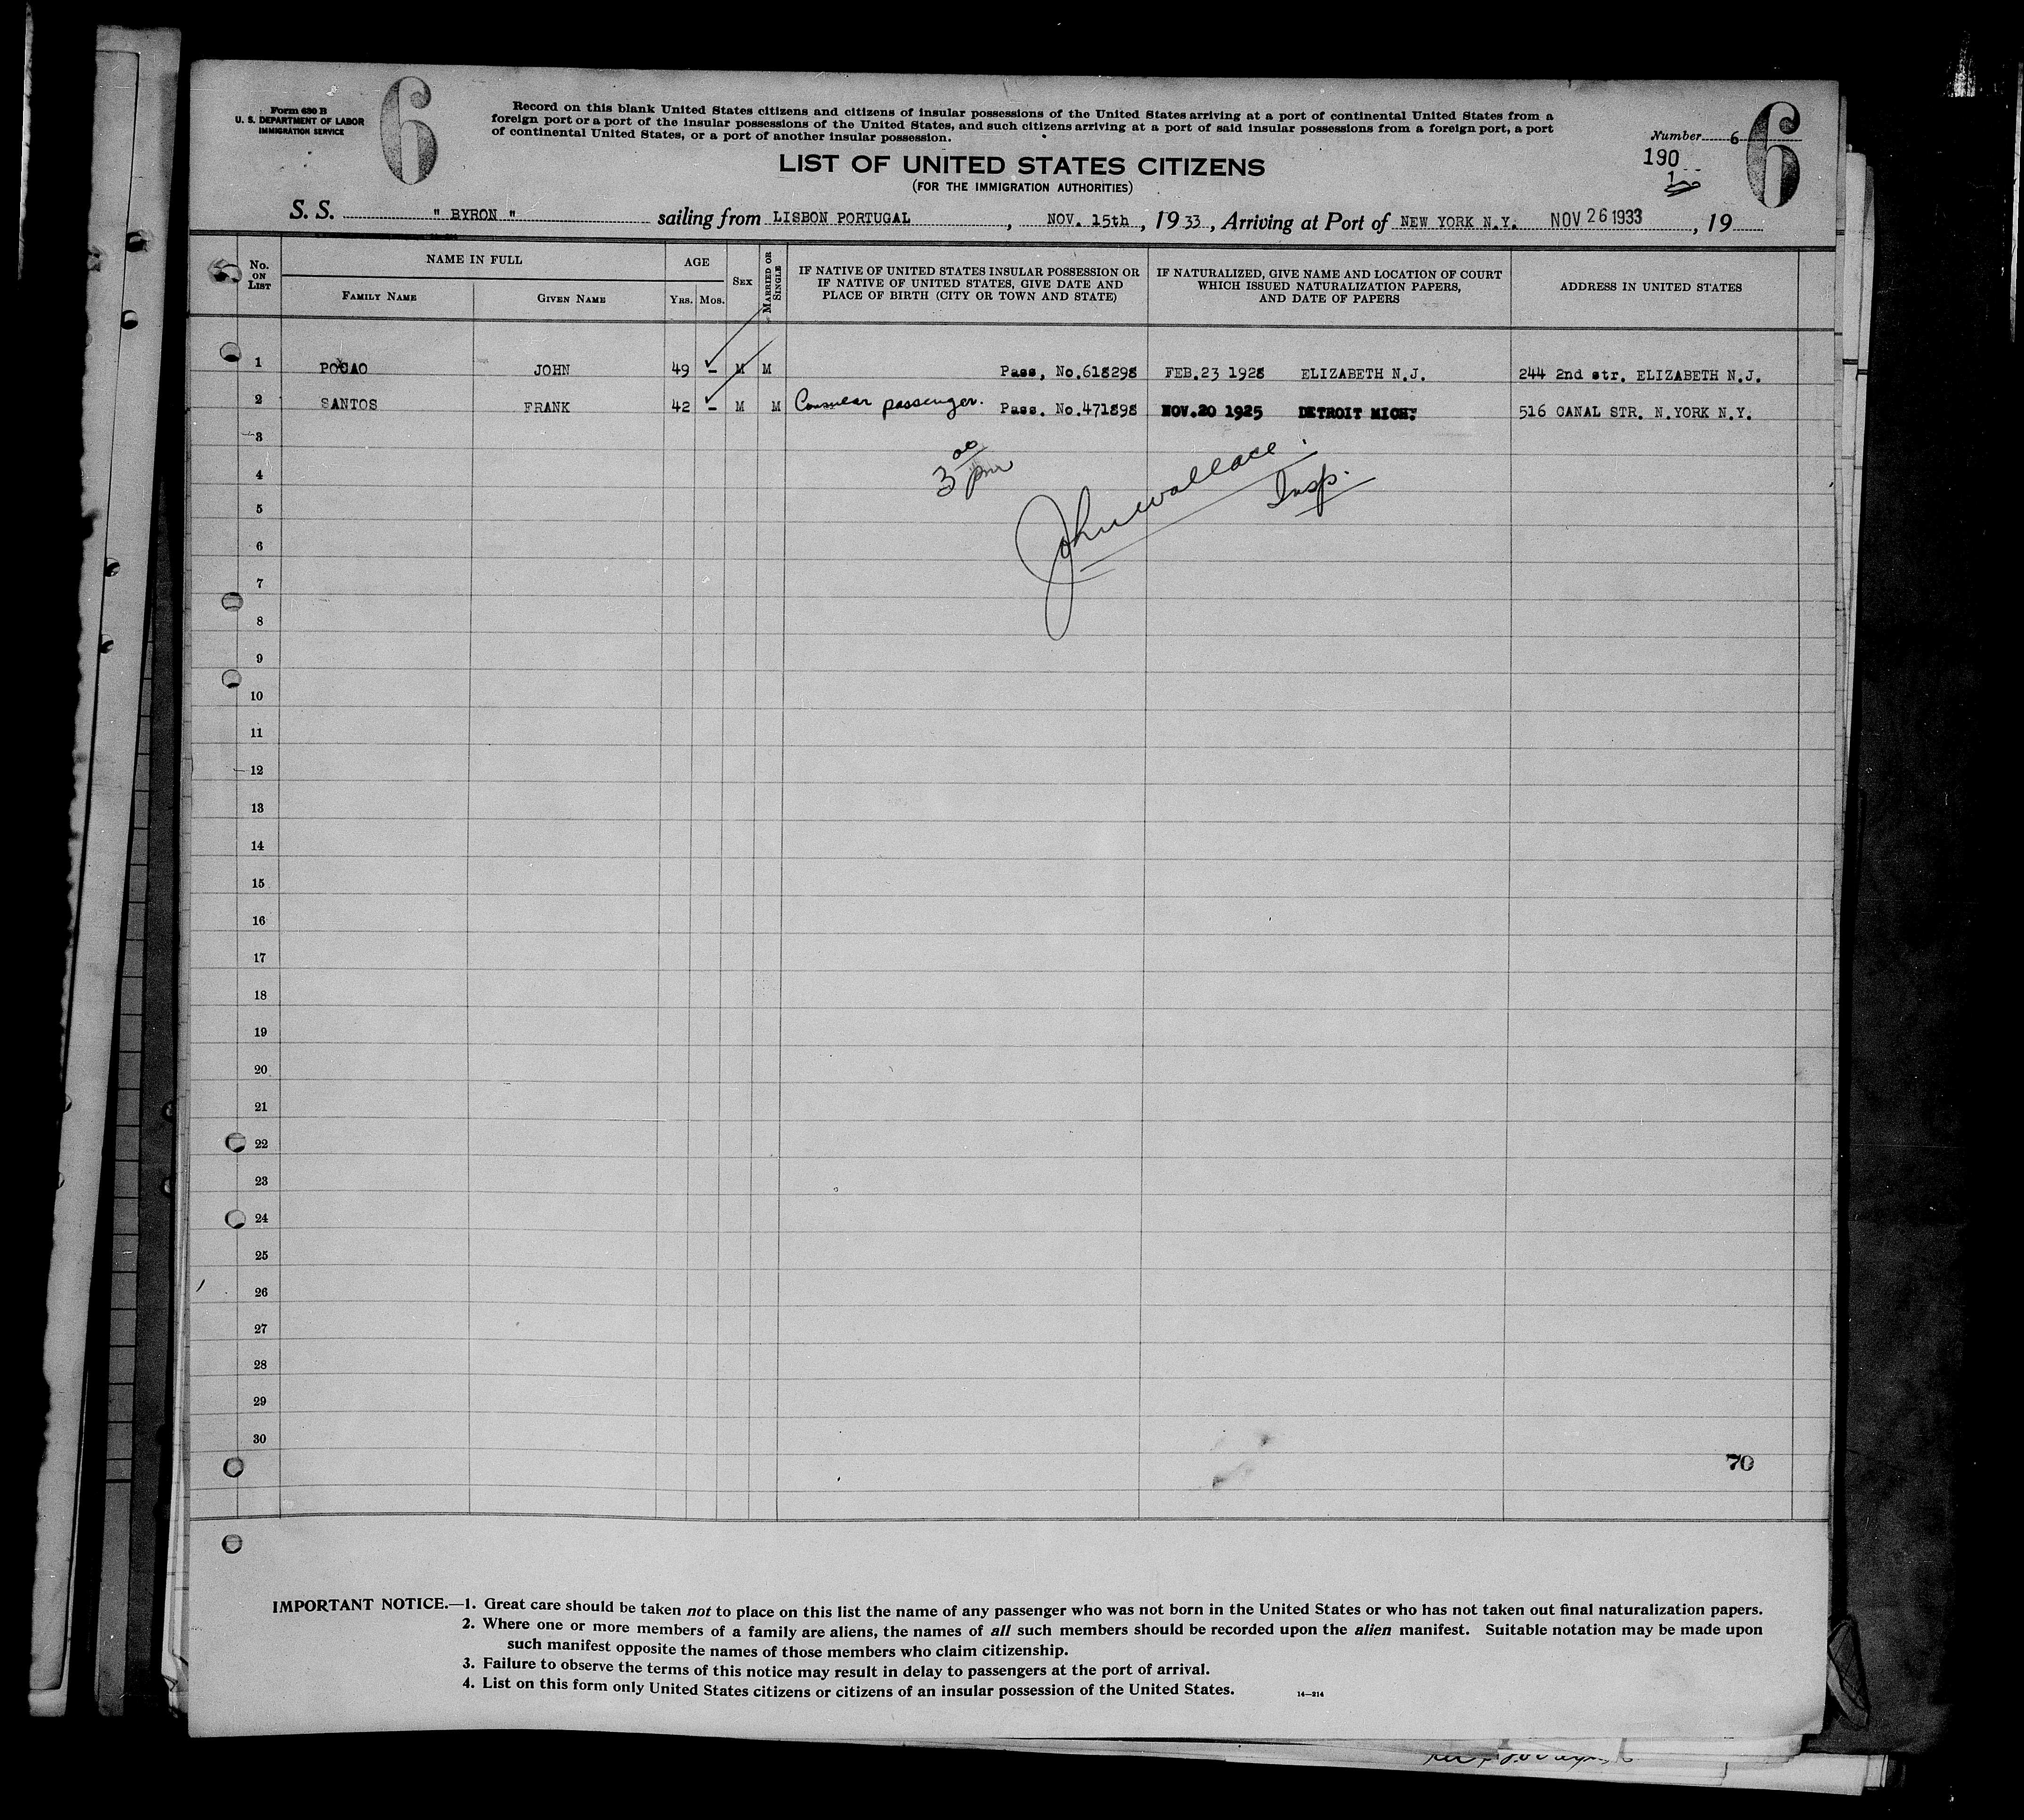 Form 630 B
U. S. DEPARTMENT OF LABOR
IMMIGRATION SERVICE
6
Record on this blank United States citizens and citizens of insular possessions of the United States arriving at a port of continental United States from a
foreign port or a port of the insular possessions of the United States, and such citizens arriving at a port of said insular possessions from a foreign port, a port
of continental United States, or a port of another insular possession.
Number 6
6
190
1
LIST OF UNITED STATES CITIZENS
(FOR THE IMMIGRATION AUTHORITIES)
S. S. " BYRON " sailing from LISBON PORTUGAL, NOV. 15th, 1933, Arriving at Port of NEW YORK N.Y. NOV 26 1933, 19
No. ON LIST
NAME IN FULL
FAMILY NAME
GIVEN NAME
AGE
YRS. MOS.
SEX
MARRIED OR SINGLE
IF NATIVE OF UNITED STATES INSULAR POSSESSION OR
IF NATIVE OF UNITED STATES, GIVE DATE AND
PLACE OF BIRTH (CITY OR TOWN AND STATE)
IF NATURALIZED, GIVE NAME AND LOCATION OF COURT
WHICH ISSUED NATURALIZATION PAPERS,
AND DATE OF PAPERS
ADDRESS IN UNITED STATES
1 JOHN 49 - M M Pass, No.618298 FEB.23 1928 ELIZABETH N.J. 244 2nd str. ELIZABETH N.J.
2 SANTOS FRANK 42 - M M Consular passenger. Pass. No.471898 NOV.20 1925 DETROIT MICH. 516 CANAL STR. N.YORK N.Y.
3
4
3 00 pm
John Wallace
Insp.
5
6
7
8
9
10
11
12
13
14
15
16
17
18
19
20
21
22
23
24
25
26
27
28
29
30
70
IMPORTANT NOTICE.—1. Great care should be taken not to place on this list the name of any passenger who was not born in the United States or who has not taken out final naturalization papers.
2. Where one or more members of a family are aliens, the names of all such members should be recorded upon the alien manifest. Suitable notation may be made upon
such manifest opposite the names of those members who claim citizenship.
3. Failure to observe the terms of this notice may result in delay to passengers at the port of arrival.
4. List on this form only United States citizens or citizens of an insular possession of the United States.
14—214